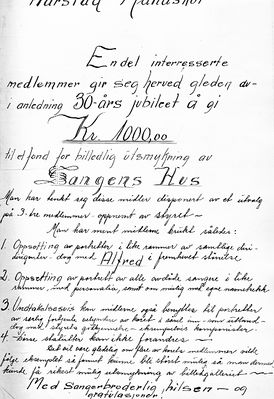 Harstad Mandskor
En del interesserte
medlemmer gir seg herved gleden av-
i anledning 30-års jubileet å gi
Kr. 1000,00
til et fond for billedlig utsmykning av
Sangens Hus
Man har tenkt seg disse midler disponert av et utvalg
på 3-tre medlemmer oppnevnt av styret-
Man har ment midlene brukt således:
1. Oppsetting av portretter i like rammer av samtlige diri-
genter- dog med Alfred i fremhevet størrelse
2. Oppsetting av portrett av alle avdøde sangere i like
rammer, med personalia, samt om mulig med egne navnetrekk
3. Unntakelsesvis kan midlene også benyttes til portretter
av
4. Disse statutter kan ikke forandres -
Med Sangerbroderlig hilsen - og
gratulasjoner!